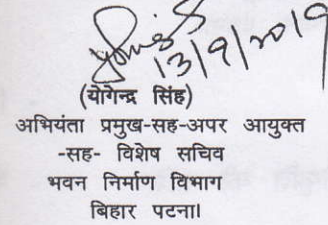 13/9/2019
(योगेन्द्र सिंह)
अभियंता प्रमुख-सह-अपर आयुक्त
-सह- विशेष सचिव
भवन निर्माण विभाग
बिहार पटना।